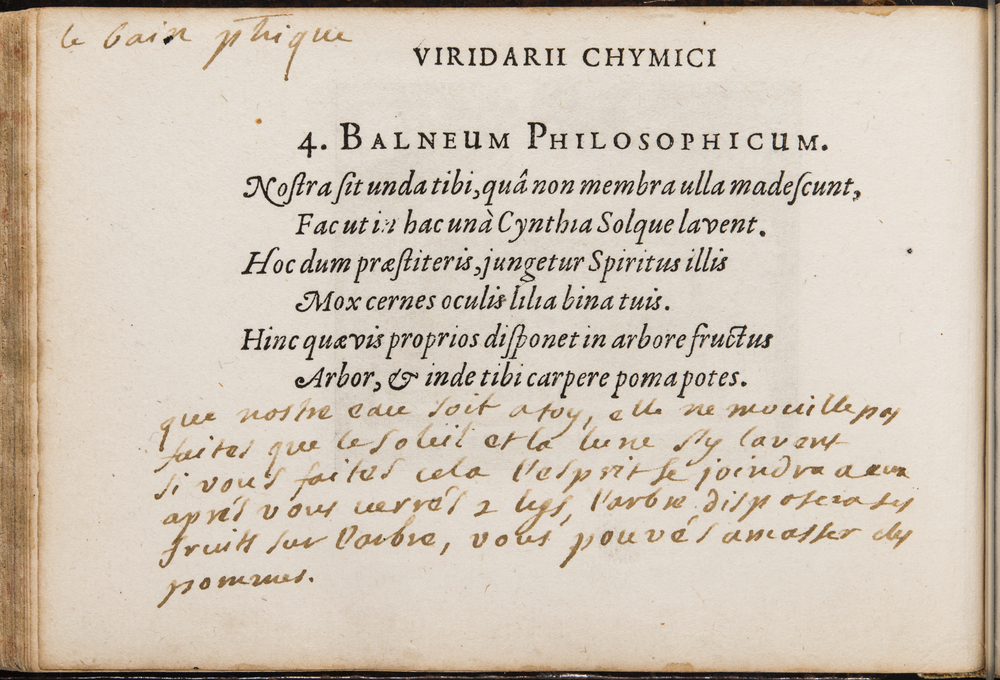 le bain phique
VIRIDARII CHYMICI
4. BALNEUM PHILOSOPHICUM.
Nostra sit unda tibi, quâ non membra ulla madescunt,
Fac ut in hac unà Cynthia Solque lavent.
Hoc dum præstiteris, jungetur Spiritus illis
Mox cernes oculis lilia bina tuis.
Hinc quævis proprios disponet in arbore fructus
Arbor, & inde tibi carpere poma potes.
que nostre eau soit a toy, elle ne mouille pas
faites que le soleil et la lune s'y lavent
si vous faites cela l'esprit se joindra a eux
aprés vous verrés 2 lys, l'arbre disposera ses
fruits sur l'arbre, vous pouvés amasser des
pommes.